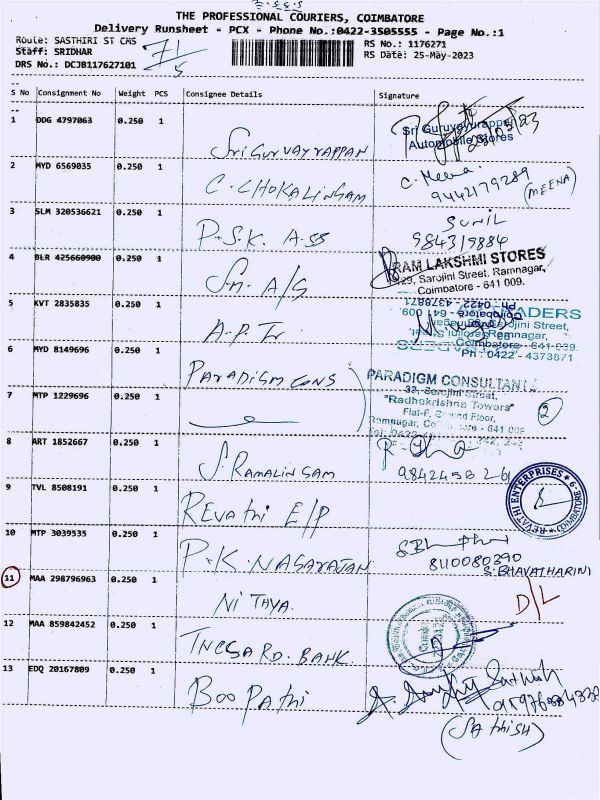 THE PROFESSIONAL COURIERS, COIMBATORE
Delivery Runsheet - PCX - Phone No.:0422-3505555 - Page No.:1
Route: SASTHIRI ST CHS
RS No.: 1176271
Staff: SRIDHAR
RS Date: 25-May-2023
DRS No.: DCJB117627101
S No Consignment No Weight PCS Consignee Details Signature
1 DDG 4797063 0.250 1 Sri Guruvayyrappan
Sri Guruvayurappa
Automobile Stores
2 MYD 6569035 0.250 1 C. CHOKALINGAM C. Meena
9442179289 (MEENA)
3 SLM 320536621 0.250 1 P.S.K. ASS SUNIL
984319884
4 BLR 425660900 0.250 1 Sri A/G
RAM LAKSHMI STORES
29, Sarojini Street, Ramnagar,
Coimbatore - 641 009.
5 KVT 2835835 0.250 1 A.P. Tr
Ph : 0422 - 4373871
6 MYD 8149696 0.250 1 PARADIGM CONS
PARADIGM CONSULTANT
32, Sarojini Street,
"Radhakrishna Towers"
7 MTP 1229696 0.250 1
2
8 ART 1852667 0.250 1 S. RAMALINGAM
9 TVL 8508191 0.250 1 REVAthi E/P
REVATHI ENTERPRISES COIMBATORE-9
10 MTP 3039535 0.250 1 P.K. NAGARAJAN
8110080390
S. BHAVATHARINI
11 MAA 298796963 0.250 1 NITHYA. D/L
12 MAA 859842452 0.250 1 TNEGARD. BANK
13 EDQ 20167809 0.250 1 BooPathi
(SATHISH)